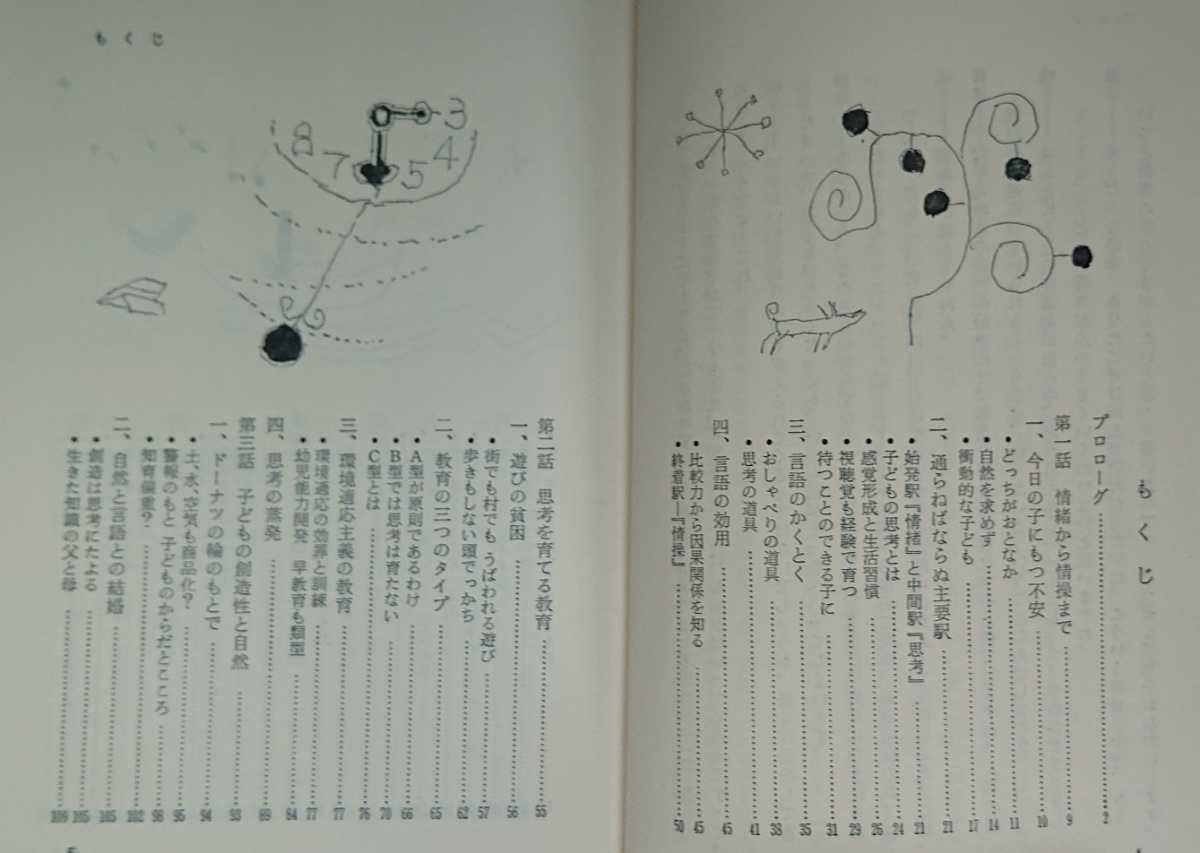 もくじ
プロローグ……2
第一話 情緒から情操まで……9
一、今日の子にもつ不安……10
・どっちがおとなか……11
・自然を求めず……14
・衝動的な子ども……17
二、通らねばならぬ主要駅……21
・始発駅『情緒』と中間駅『思考』……21
・子どもの思考とは……24
・感覚形成と生活習慣……26
・視聴覚も経験で育つ……29
・待つことのできる子に……31
三、言語のかくとく……35
・おしゃべりの道具……38
・思考の道具……41
四、言語の効用……45
・比較力から因果関係を知る……45
・終着駅―『情操』……50
もくじ
3
4
5
7
8
第二話 思考を育てる教育……55
一、遊びの貧困……56
・街でも村でも うばわれる遊び……57
・歩きもしない頭でっかち……62
二、教育の三つのタイプ……65
・A型が原則であるわけ……66
・B型では思考は育たない……70
・C型とは……76
三、環境適応主義の教育……77
・環境適応の効罪と訓練……77
・幼児能力開発 早教育も類型……84
四、思考の蒸発……89
第三話 子どもの創造性と自然……93
一、ドーナツの輪のもとで……94
・土、水、空気も商品化？……95
・警報のもと 子どものからだとこころ……98
・知育偏重？……102
二、自然と言語との結婚……105
・創造は思考にたよる……105
・生きた知識の父と母……109
5